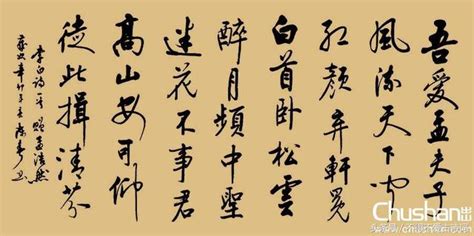 吾愛孟夫子
風流天下聞
紅顏弃軒冕
白首臥松雲
醉月頻中聖
迷花不事君
高山安可仰
徒此揖清芬
李白詩一首 贈孟浩然
歲次辛卯
Chushan
www.chushan.com